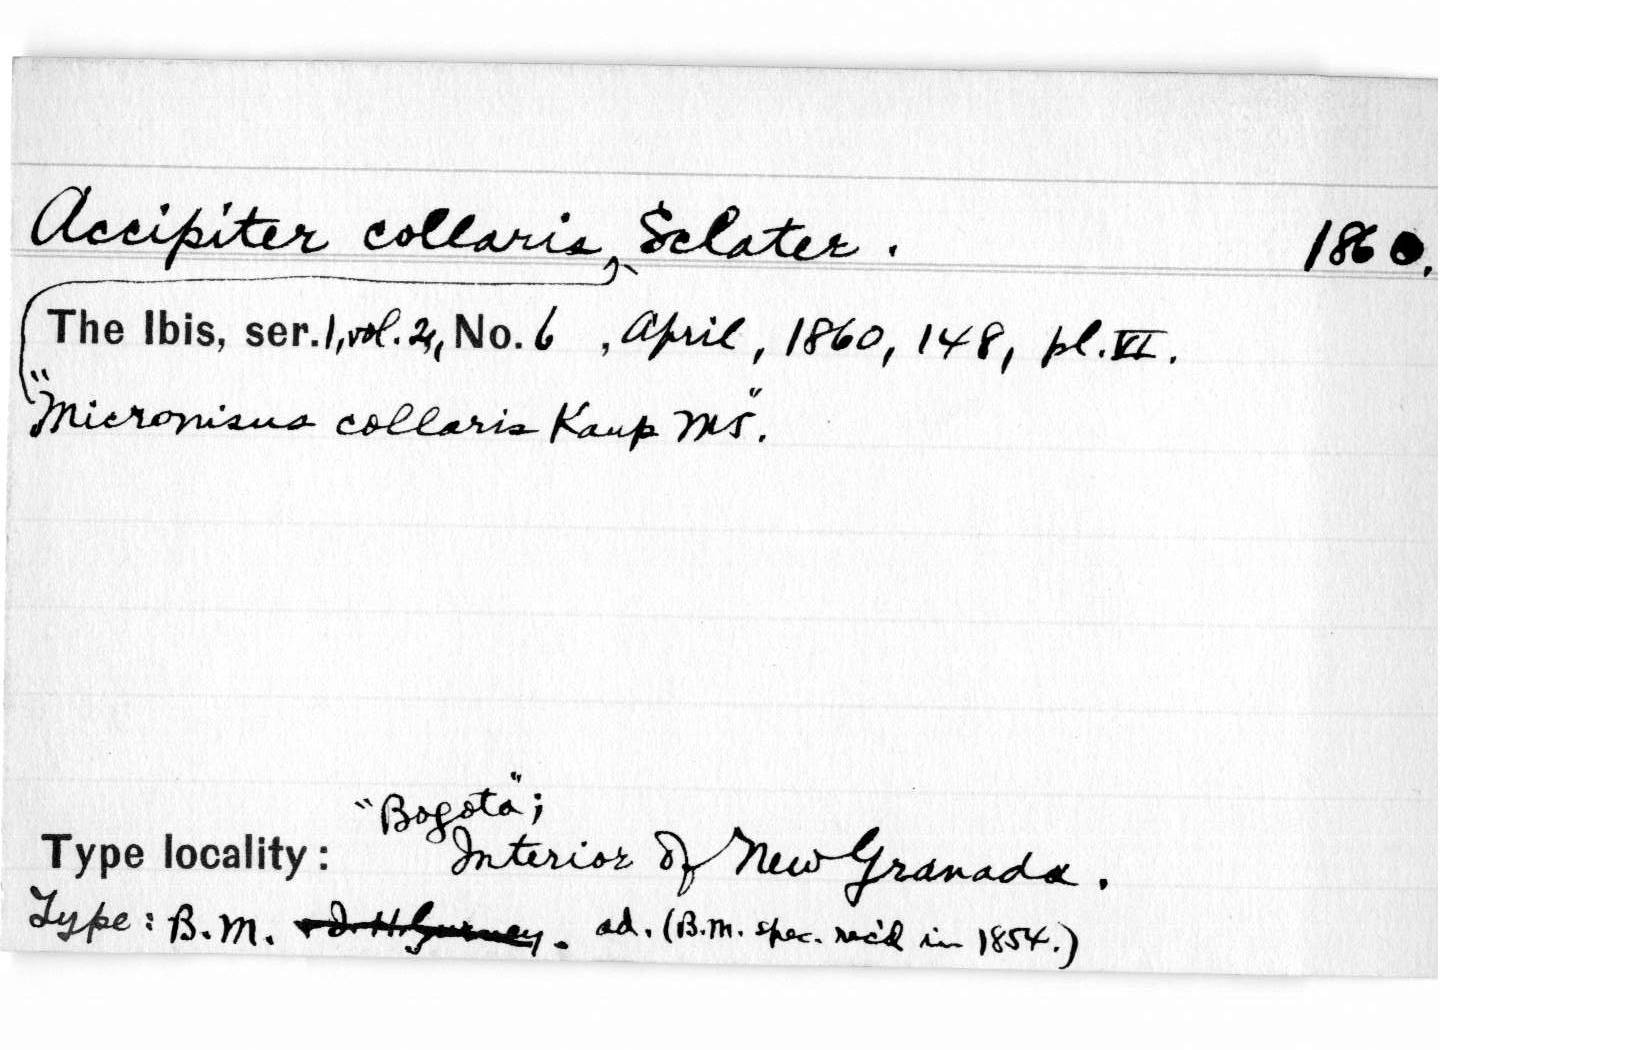 Accipiter collaris, Sclater. 1860.
The Ibis, ser. 1, vol. 2, No. 6, April, 1860, 148, pl. VI.
"Micronisus collaris Kaup MS".
"Bogota";
Type locality: Interior of New Granada.
Type: B.M. + J. H. Gurney. ad. (B.M. spec. rec'd in 1854.)